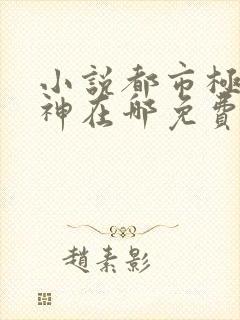 小說都市極
神在哪免費
趙素影